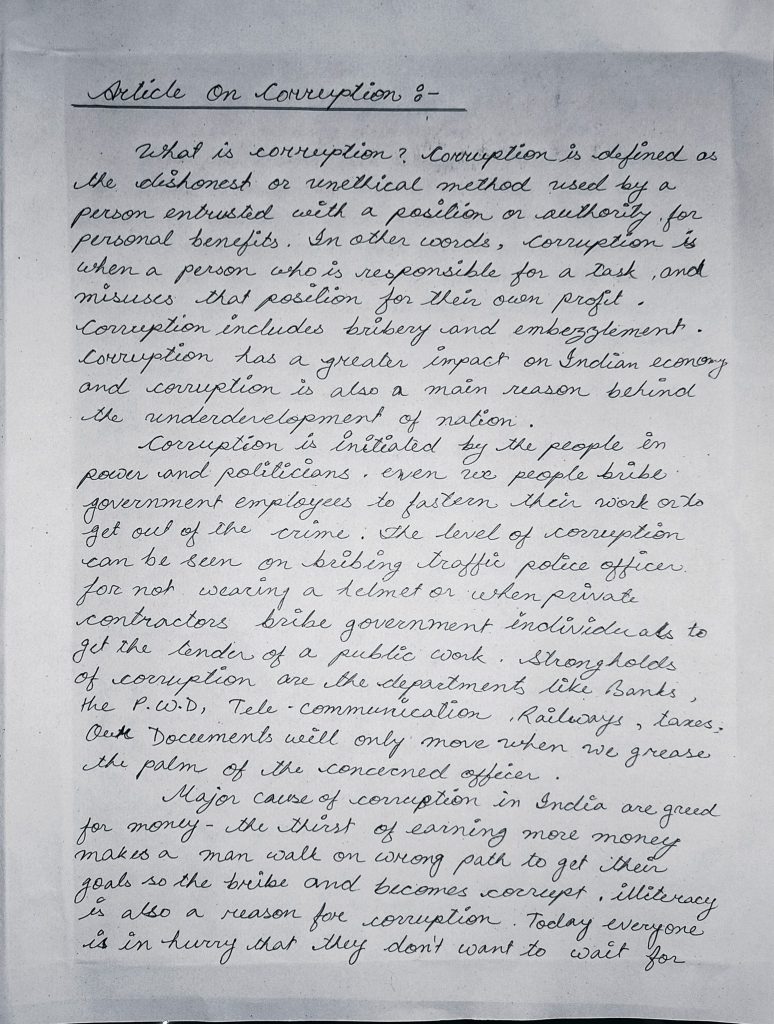 Article On Corruption :-
What is corruption? Corruption is defined as
the dishonest or unethical method used by a
person entrusted with a position or authority, for
personal benefits. In other words, corruption is
when a person who is responsible for a task, and
misuses that position for their own profit.
Corruption includes bribery and embezzlement.
Corruption has a greater impact on Indian economy
and corruption is also a main reason behind
the underdevelopment of nation.
Corruption is initiated by the people in
power and politicians. even we people bribe
government employees to fastern their work or to
get out of the crime. The level of corruption
can be seen on bribing traffic police officer
for not wearing a helmet or when private
contractors bribe government individuals to
get the tender of a public work. Strongholds
of corruption are the departments like Banks,
the P.W.D, Tele-communication, Railways, taxes.
Our Documents will only move when we grease
the palm of the concerned officer.
Major cause of corruption in India are greed
for money - the thirst of earning more money
makes a man walk on wrong path to get their
goals so the bribe and becomes corrupt. illiteracy
is also a reason for corruption. Today everyone
is in hurry that they don't want to wait for